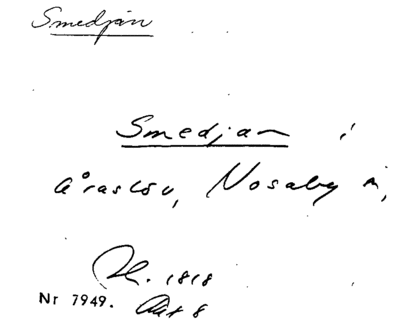 Smedjan
Smedjan i
Åraslöv, Nosaby sn,
1818
Nr 7949. Akt 8